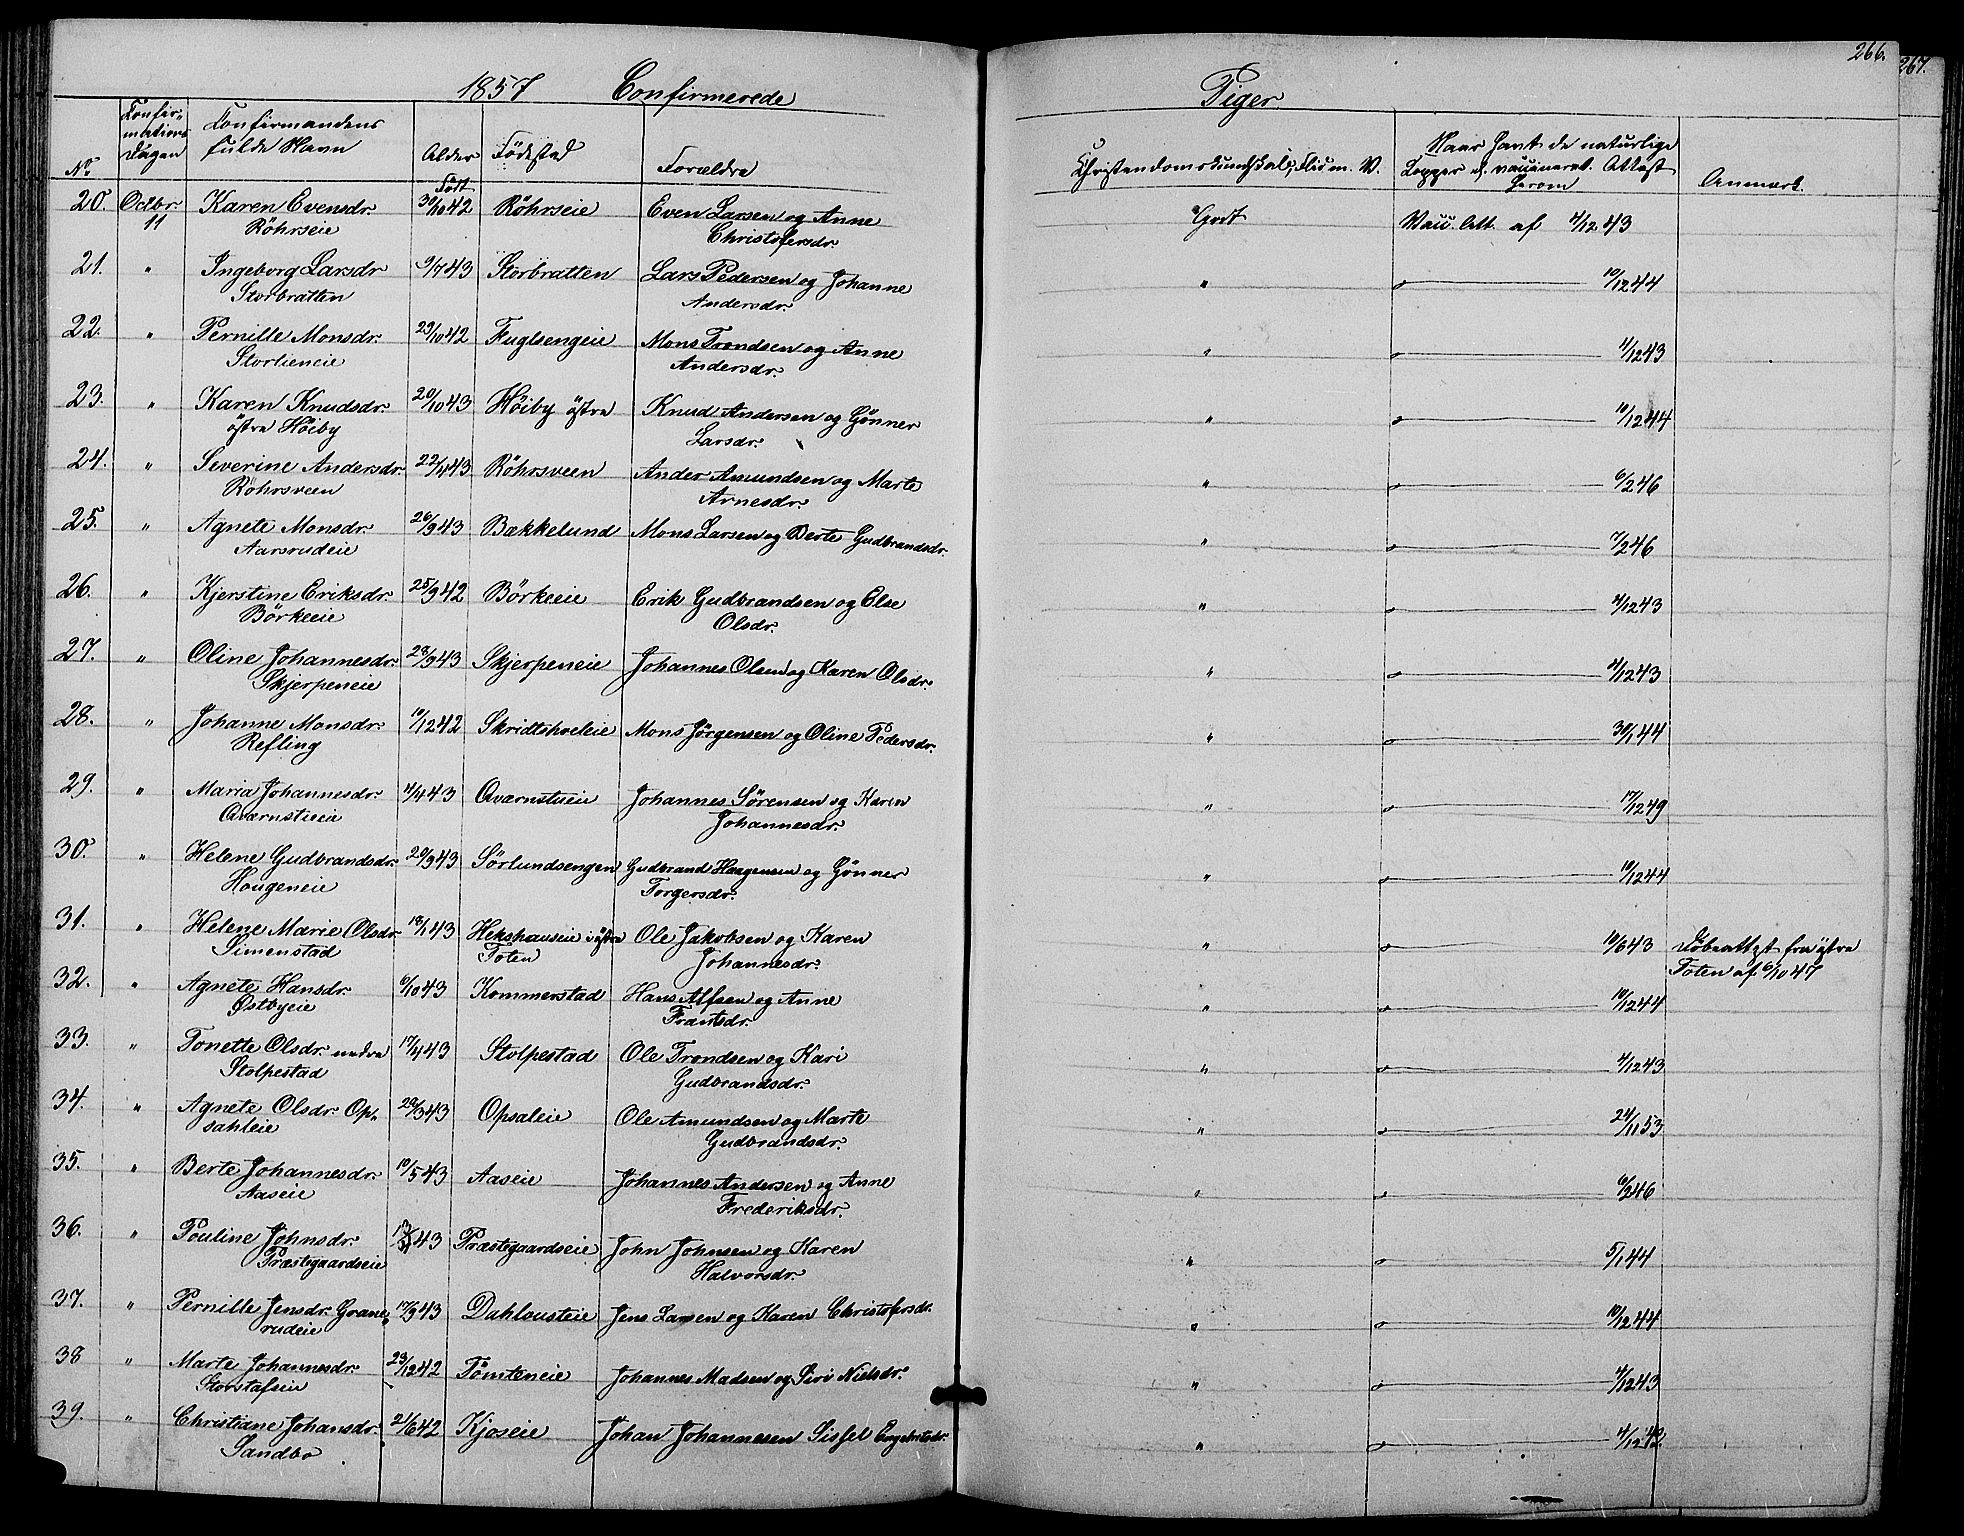 266.
267.
1857 Confirmerede Piger.
No Confirmations Dagen Confirmandens fulde Navn Alder Fødested Forældre Christendomskundskab, Flid m. V. Naar havt de naturlige Kopper el. vaccineret. Attest herom Anmærk.
Født
20. Octbr. 11 Karen Evensdr. 30/10 42 Röhrseie Even Larsen og Anne Godt Vacc. Att. af 4/12 43
Röhrseie Christofersdr.
21. " Ingeborg Larsdr 9/7 43 Storbratten Lars Pedersen og Johanne " 10/12 44
Storbratten Andersdr.
22. " Pernille Monsdr. 29/10 42 Fuglsengeie Mons Trondsen og Anne " 4/12 43
Storlieneie Andersdr.
23. " Karen Knudsdr. 20/10 43 Höiby östra Knud Andersen og Gönner " 10/12 44
östra Höiby Larsdr.
24. " Severine Andersdr. 22/4 43 Röhrsveen Ander Amundsen og Marte " 6/2 46
Röhrsveen Arnesdr.
25. " Agnete Monsdr. 26/9 43 Bækkelund Mons Larsen og Berte Gudbrandsdr. " 7/2 46
Aarsrudeie
26. " Kjerstine Eriksdr. 25/9 42 Börkeeie Erik Gudbrandsen og Else " 4/12 43
Börkeeie Olsdr.
27. " Oline Johannesdr. 23/9 43 Skjerpeneie Johannes Olsen og Karen Olsdr. " 4/12 43
Skjerpeneie
28. " Johanne Monsdr. 10/12 42 Skridtsholeie Mons Jörgensen og Oline Pedersdr. " 30/1 44
Refling
29. " Maria Johannesdr. 4/4 43 Qværnstueie Johannes Sörensen og Karen " 17/12 49
Qværnstueie Johannesdr.
30. " Helene Gudbrandsdr. 20/9 43 Sörlundsengen Gudbrand Haagensen og Gönner " 10/12 44
Hougeneie Torgersdr.
31. " Helene Marie Olsdr. 18/1 43 Hekshauseie i östra Ole Jakobsen og Karen " 10/6 43 Döbeattest fra östre
Simenstad Toten Johannesdr. Toten af 6/10 47
32. " Agnete Hansdr. 6/10 43 Kommerstad Hans Alfsen og Anne " 10/12 44
Østbyeie Frantsdr.
33. " Tonette Olsdr. nedre 17/4 43 Stolpestad Ole Trondsen og Kari " 4/12 43
Stolpestad Gudbrandsdr.
34. " Agnete Olsdr. Op- 29/3 43 Opsaleie Ole Amundsen og Marte " 24/11 53
sahleie Gudbrandsdr.
35. " Berte Johannesdr. 10/5 43 Aaseie Johannes Andersen og Anne " 6/2 46
Aaseie Frederiksdr.
36. " Pouline Johnsdr. 43 Præstegaardseie John Johnsen og Karen " 5/1 44
Præstegaardseie Halvorsdr.
37. " Pernille Jensdr. Grane- 17/9 43 Dahlousteie Jens Larsen og Karen Christofersdr. " 10/12 44
rudeie
38 " Marte Johannesdr. 23/12 42 Tömteneie Johannes Madsen og Siri Nielsdr. " 4/12 43
Storstafseie
39. " Christiane Johansdr. 21/6 42 Kjoseie Johan Johannesen Sissel Engebretsdr. " 4/12
Sandbo